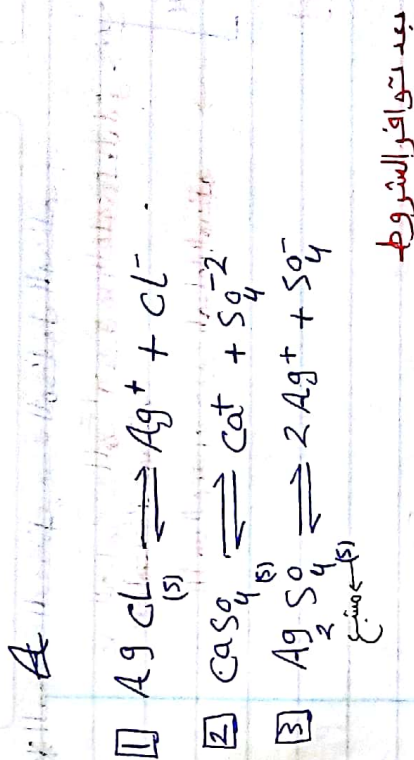 A
1 Ag CL(s) ⇌ Ag⁺ + CL⁻ .
2 CaSo₄(s) ⇌ Ca⁺ + So₄⁻²
3 Ag₂So₄(s) ⇌ 2Ag⁺ + So₄⁻
مشبع ←
بعد توافر الشروط